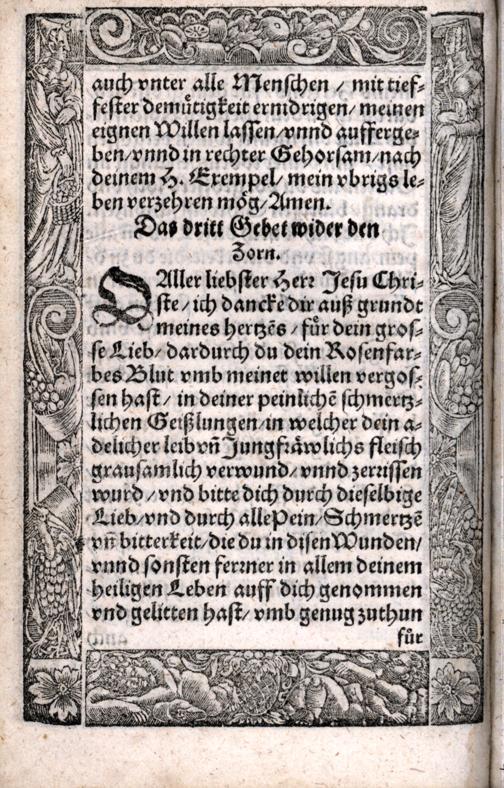 auch vnter alle Menschen / mit tief-
fester demütigkeit ernidrigen / meinen
eignen Willen lassen / vnnd aufferge-
ben / vnnd in rechter Gehorsam / nach
deinem H. Exempel / mein vbrigs le-
ben verzehren mög / Amen.
Das dritt Gebet wider den
Zorn.
O Aller liebster Herr Jesu Chri-
ste / ich dancke dir auß grundt
meines hertzēs / für dein gros-
se Lieb / dardurch du dein Rosenfar-
bes Blut vmb meinet willen vergos-
sen hast / in deiner peinlichē schmertz-
lichen Geißlungen / in welcher dein a-
delicher leib vñ Jungfräwlichs fleisch
grausamlich verwund / vnnd zerrissen
wurd / vnd bitte dich durch dieselbige
Lieb / vnd durch alle Pein / Schmertzē
vñ bitterkeit / die du in disen Wunden /
vnnd sonsten ferrner in allem deinem
heiligen Leben auff dich genommen
vnd gelitten hast / vmb genug zuthun
für